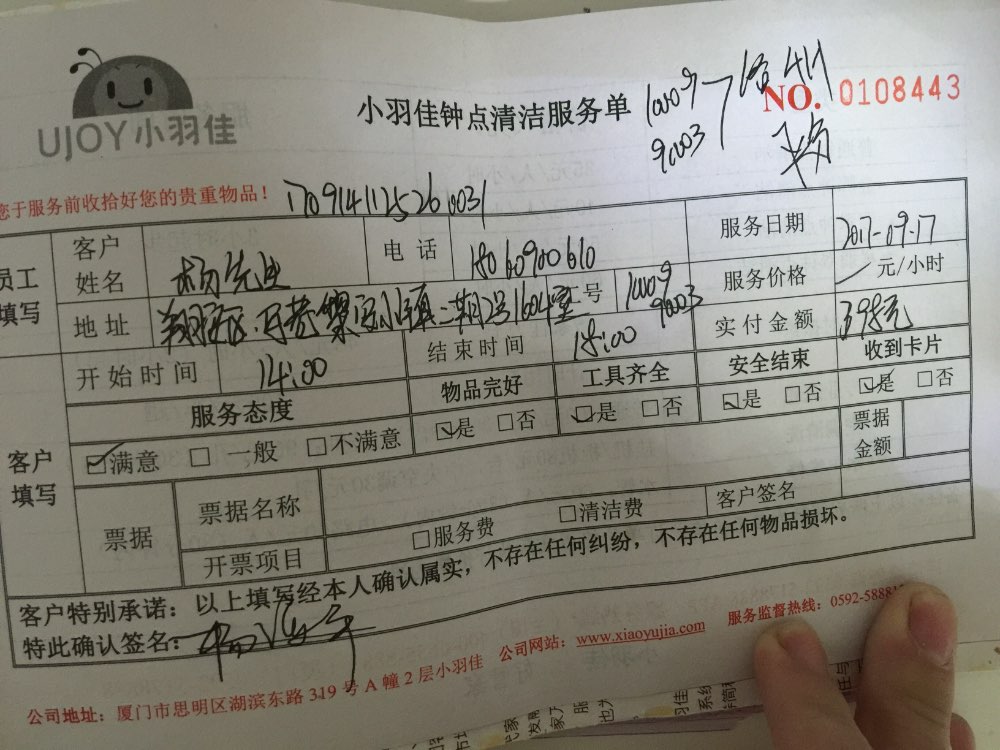 UJOY小羽佳
小羽佳钟点清洁服务单
10009
90003
NO. 0108443
您于服务前收拾好您的贵重物品！
170914112526 0031
员工填写
客户姓名
杨先生
电 话
18060900610
服务日期
2017-09-17
地 址
2号1604室
工号
10009
90003
服务价格
元/小时
开始时间
14:00
结束时间
18:00
实付金额
398元
客户填写
服务态度
物品完好
工具齐全
安全结束
收到卡片
☑满意 □ 一般 □不满意
☑是 □否
☑是 □否
☑是 □否
☑是 □否
票据
票据名称
票据金额
开票项目
□服务费 □清洁费
客户签名
客户特别承诺：以上填写经本人确认属实，不存在任何纠纷，不存在任何物品损坏。
特此确认签名：
公司地址：厦门市思明区湖滨东路 319 号 A 幢 2 层小羽佳 公司网站：www.xiaoyujia.com 服务监督热线：0592-5888